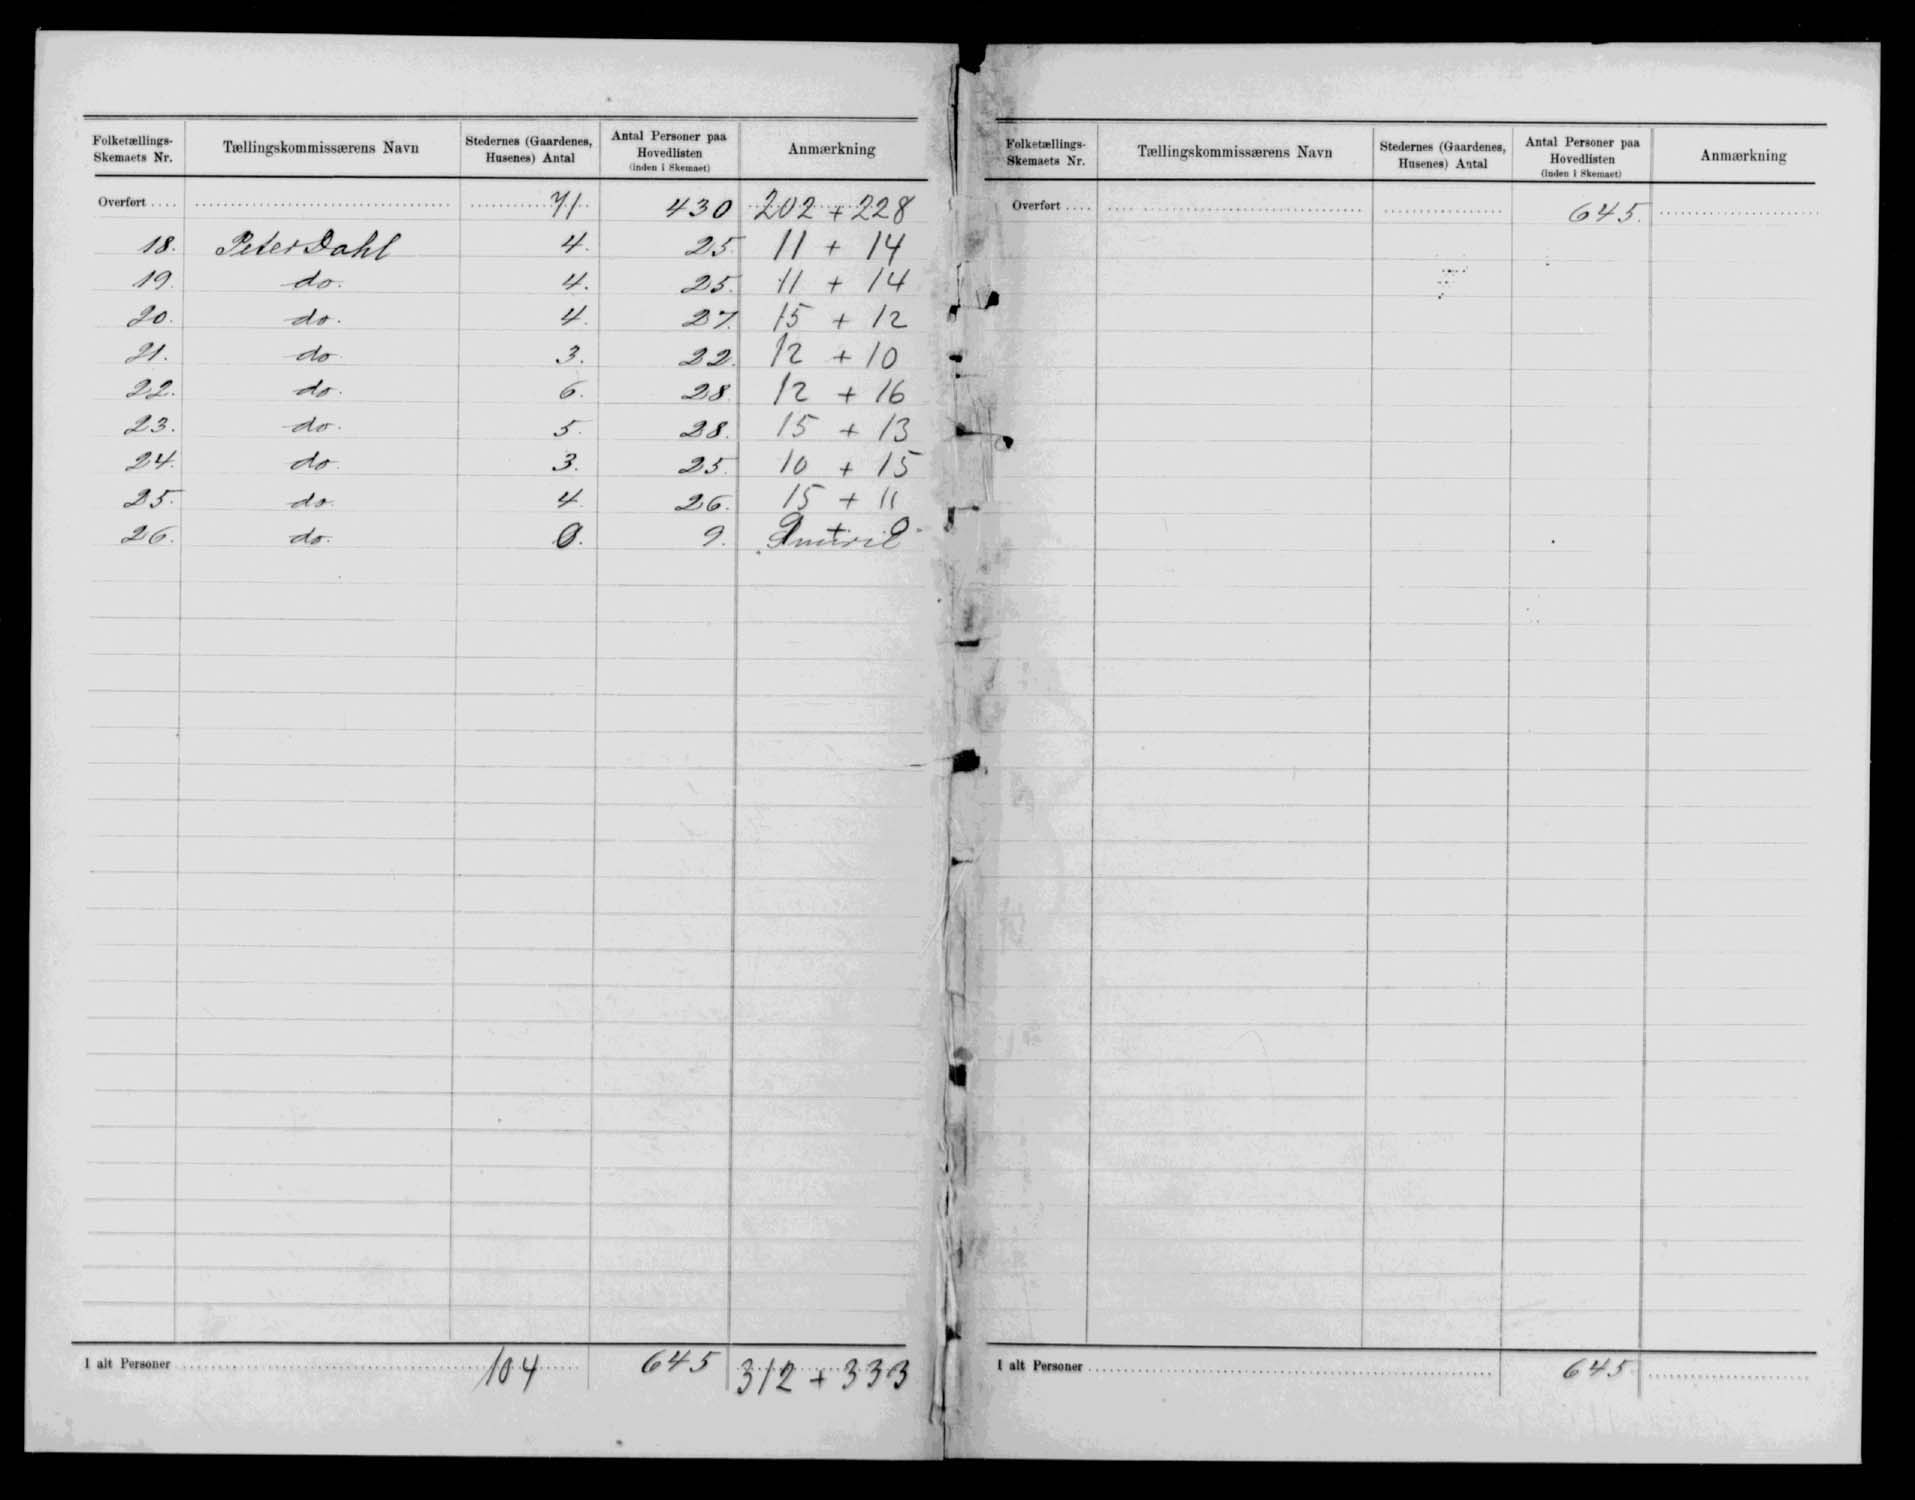 Folketællings-Skemaets Nr. Tællingskommissærens Navn Stedernes (Gaardenes, Husenes) Antal Antal Personer paa Hovedlisten (inden i Skemaet) Anmærkning
Overført .... 71 430 202 + 228
18. Peter Dahl 4. 25. 11 + 14
19. do. 4. 25. 11 + 14
20. do. 4. 27. 15 + 12
21. do 3. 22. 12 + 10
22. do. 6. 28. 12 + 16
23. do. 5. 28. 15 + 13
24. do. 3. 25. 10 + 15
25. do. 4. 26. 15 + 11
26. do. 0. 9.
I alt Personer 104 645 312 + 333
Folketællings-Skemaets Nr. Tællingskommissærens Navn Stedernes (Gaardenes, Husenes) Antal Antal Personer paa Hovedlisten (inden i Skemaet) Anmærkning
Overført .... 645.
I alt Personer 645